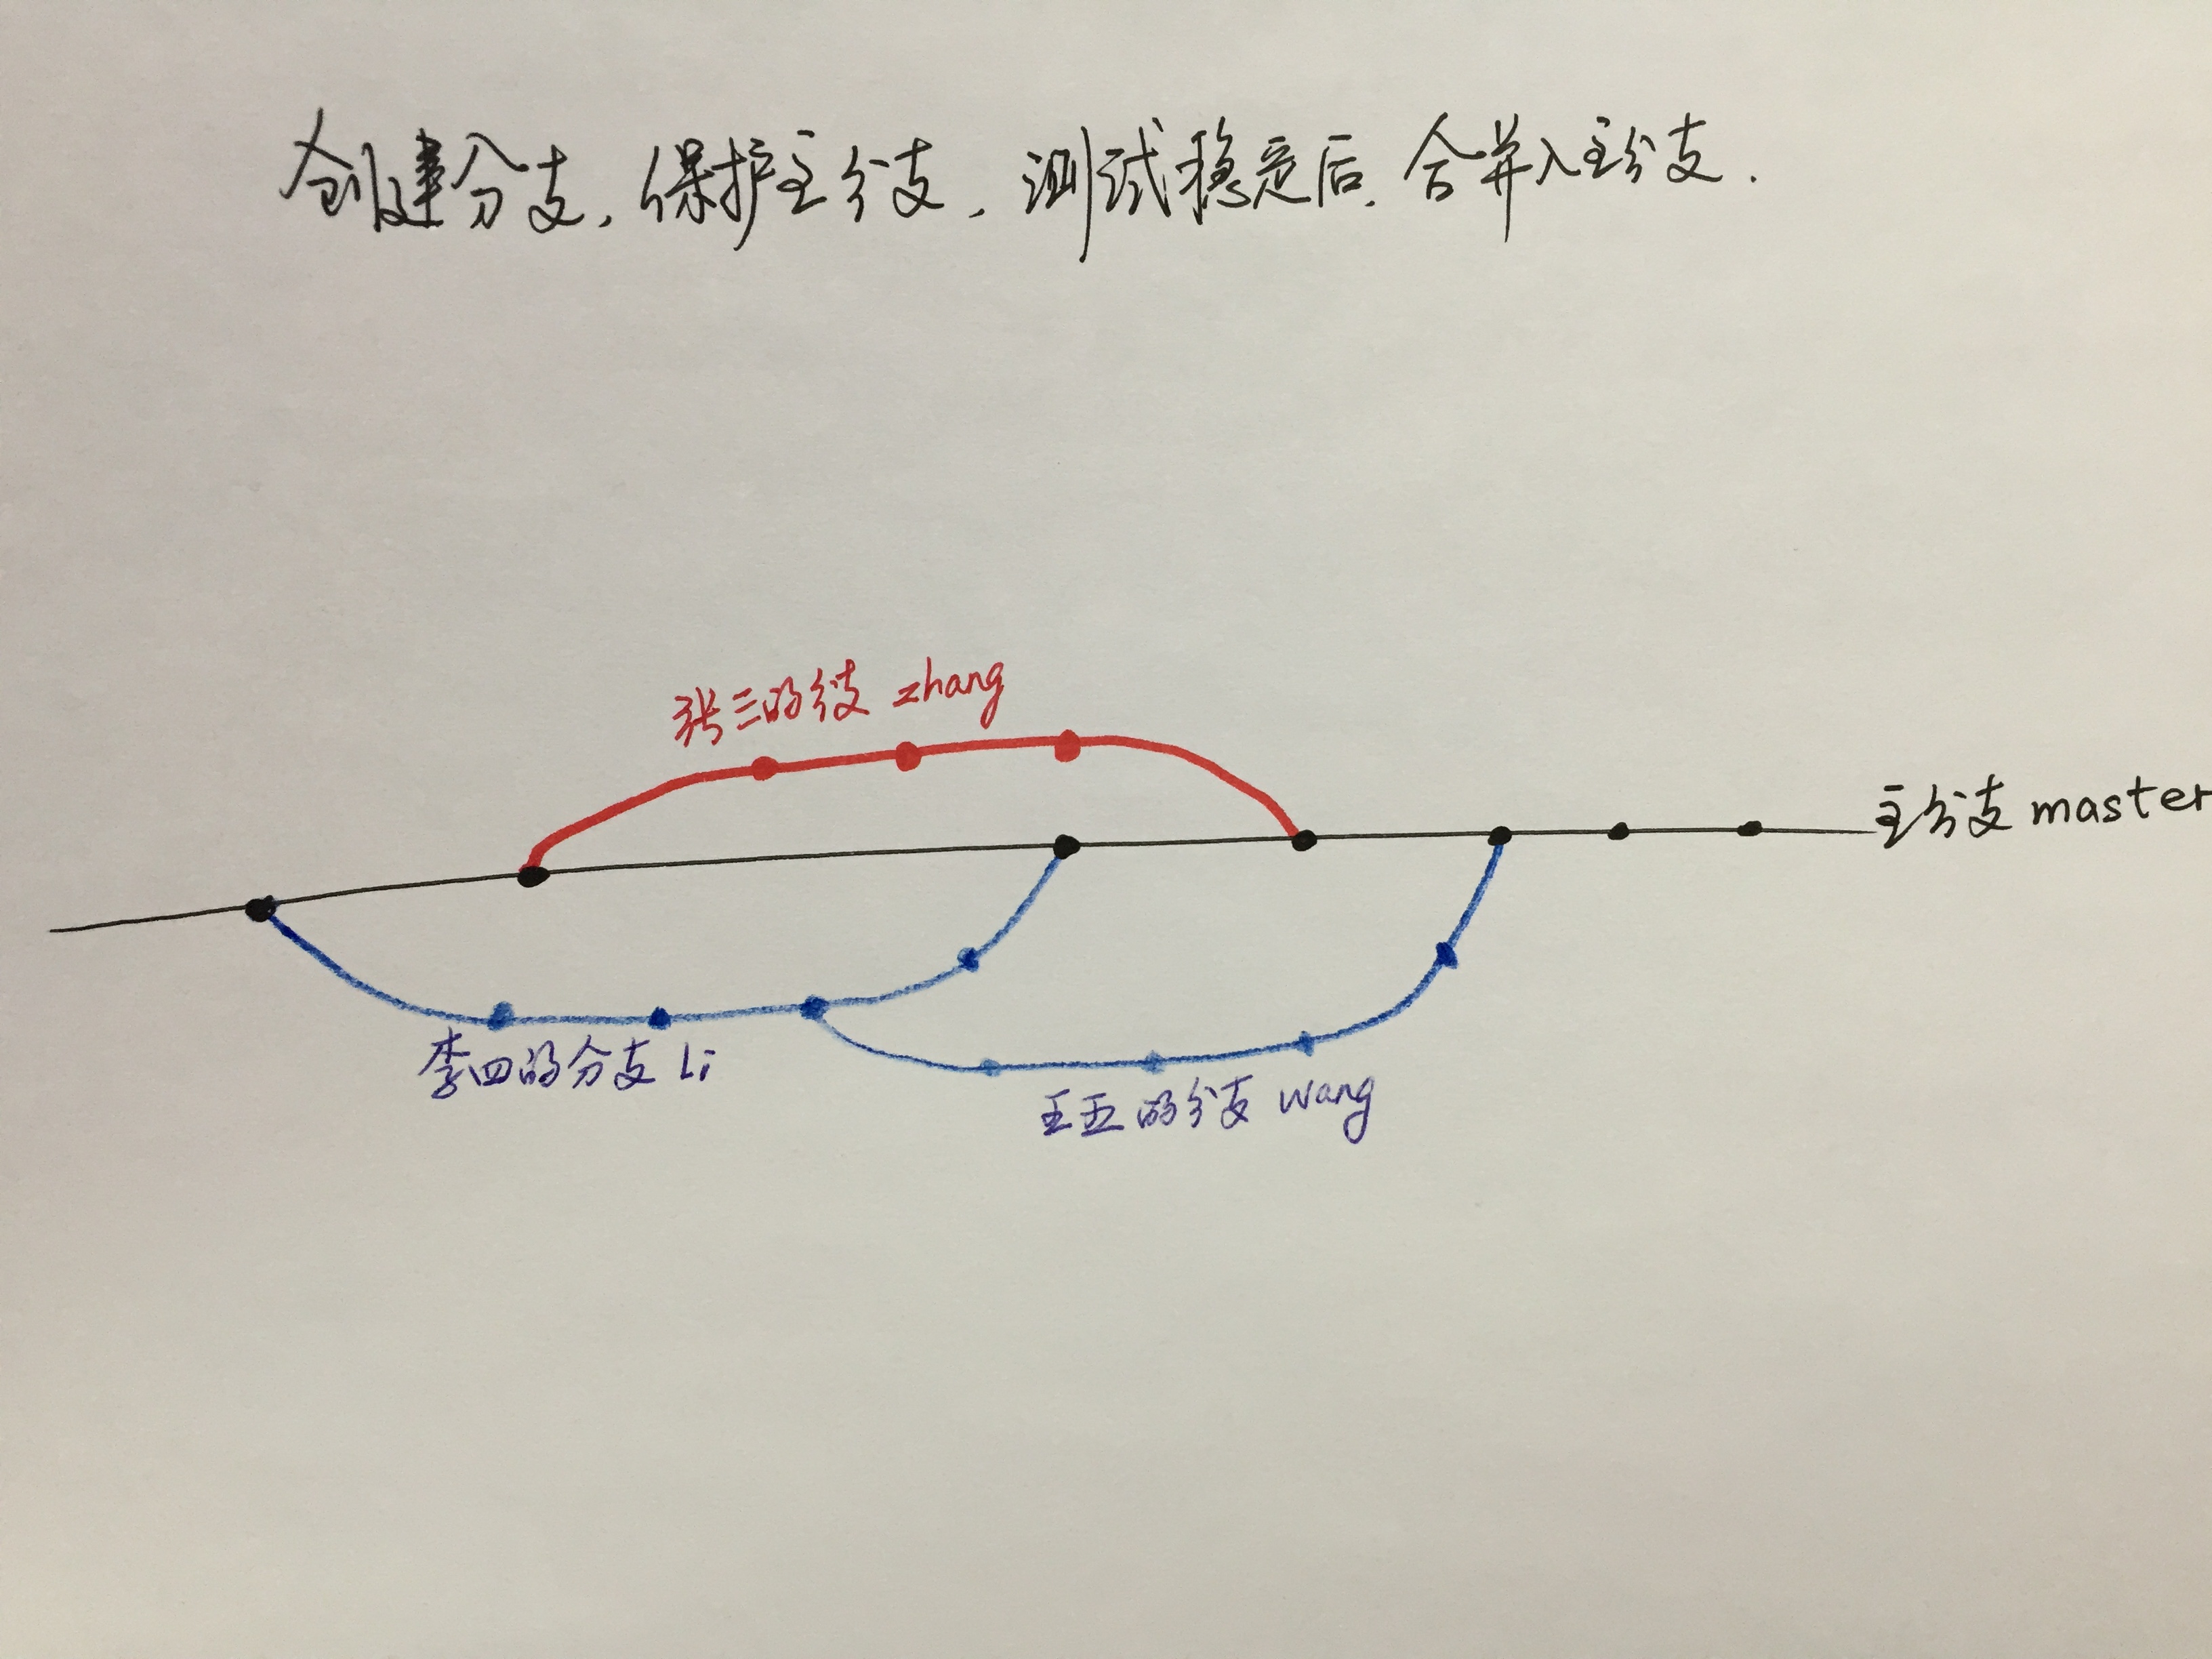 创建分支,保护主分支,测试稳定后,合并入主分支.
张三的分支 zhang
主分支 master
李四的分支 Li
王五的分支 wang